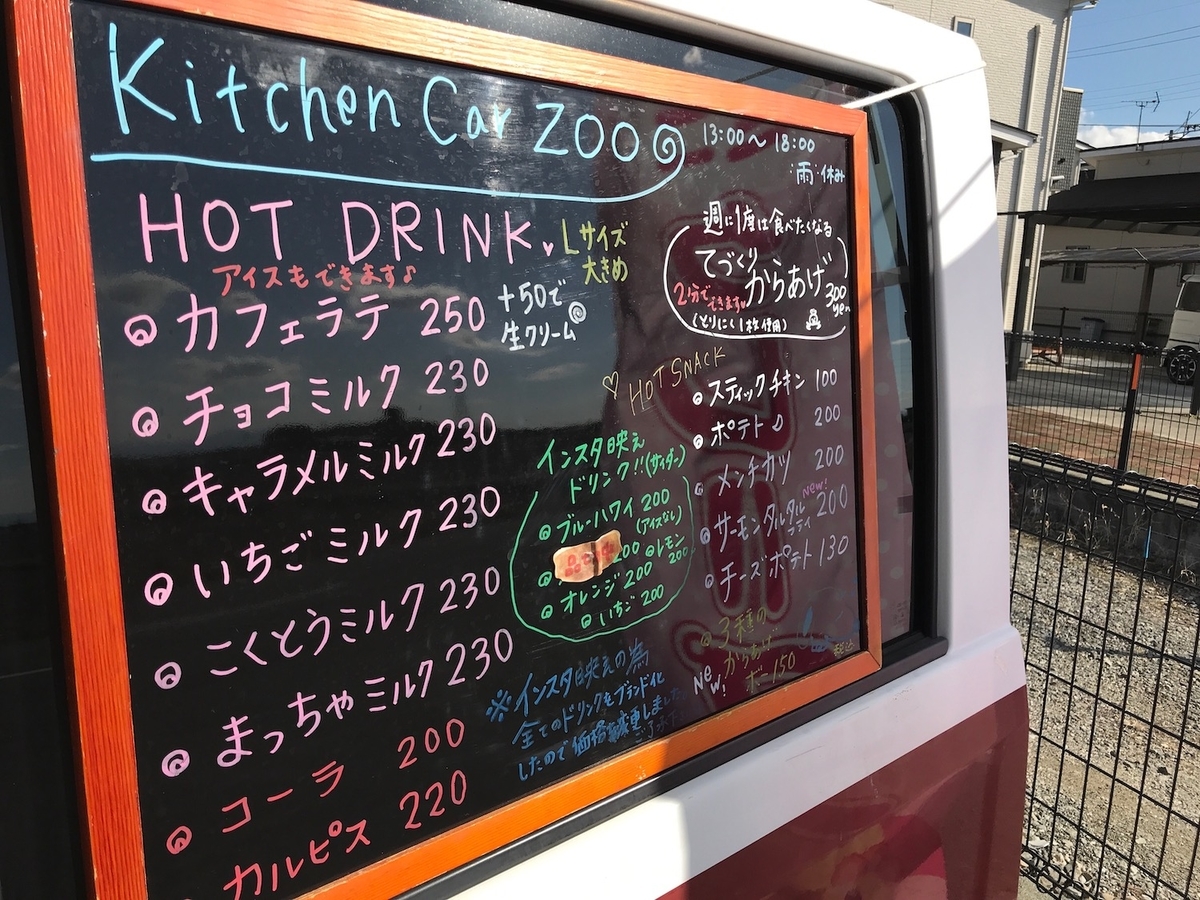 Kitchen Car ZOO
13:00〜18:00
雨・休み
HOT DRINK
Lサイズ
大きめ
アイスもできます♪
カフェラテ 250
+50で
生クリーム
チョコミルク 230
キャラメルミルク 230
いちごミルク 230
こくとうミルク 230
まっちゃミルク 230
コーラ 200
カルピス 220
週に1度は食べたくなる
てづくり
からあげ
300
yen
2分で
できます
(とりにく1枚使用)
♡ HOT SNACK
スティックチキン 100
ポテト♪ 200
メンチカツ 200
New!
サーモンタルタル 200
フライ
チーズポテト 130
3種の
からあげ
ボー 150
New!
税込
インスタ映え
ドリンク!!(サイダー)
ブルーハワイ 200
(アイスなし)
200
レモン
200
オレンジ 200
いちご 200
※インスタ映えの為
全てのドリンクもブランド化
したので価格変更しました